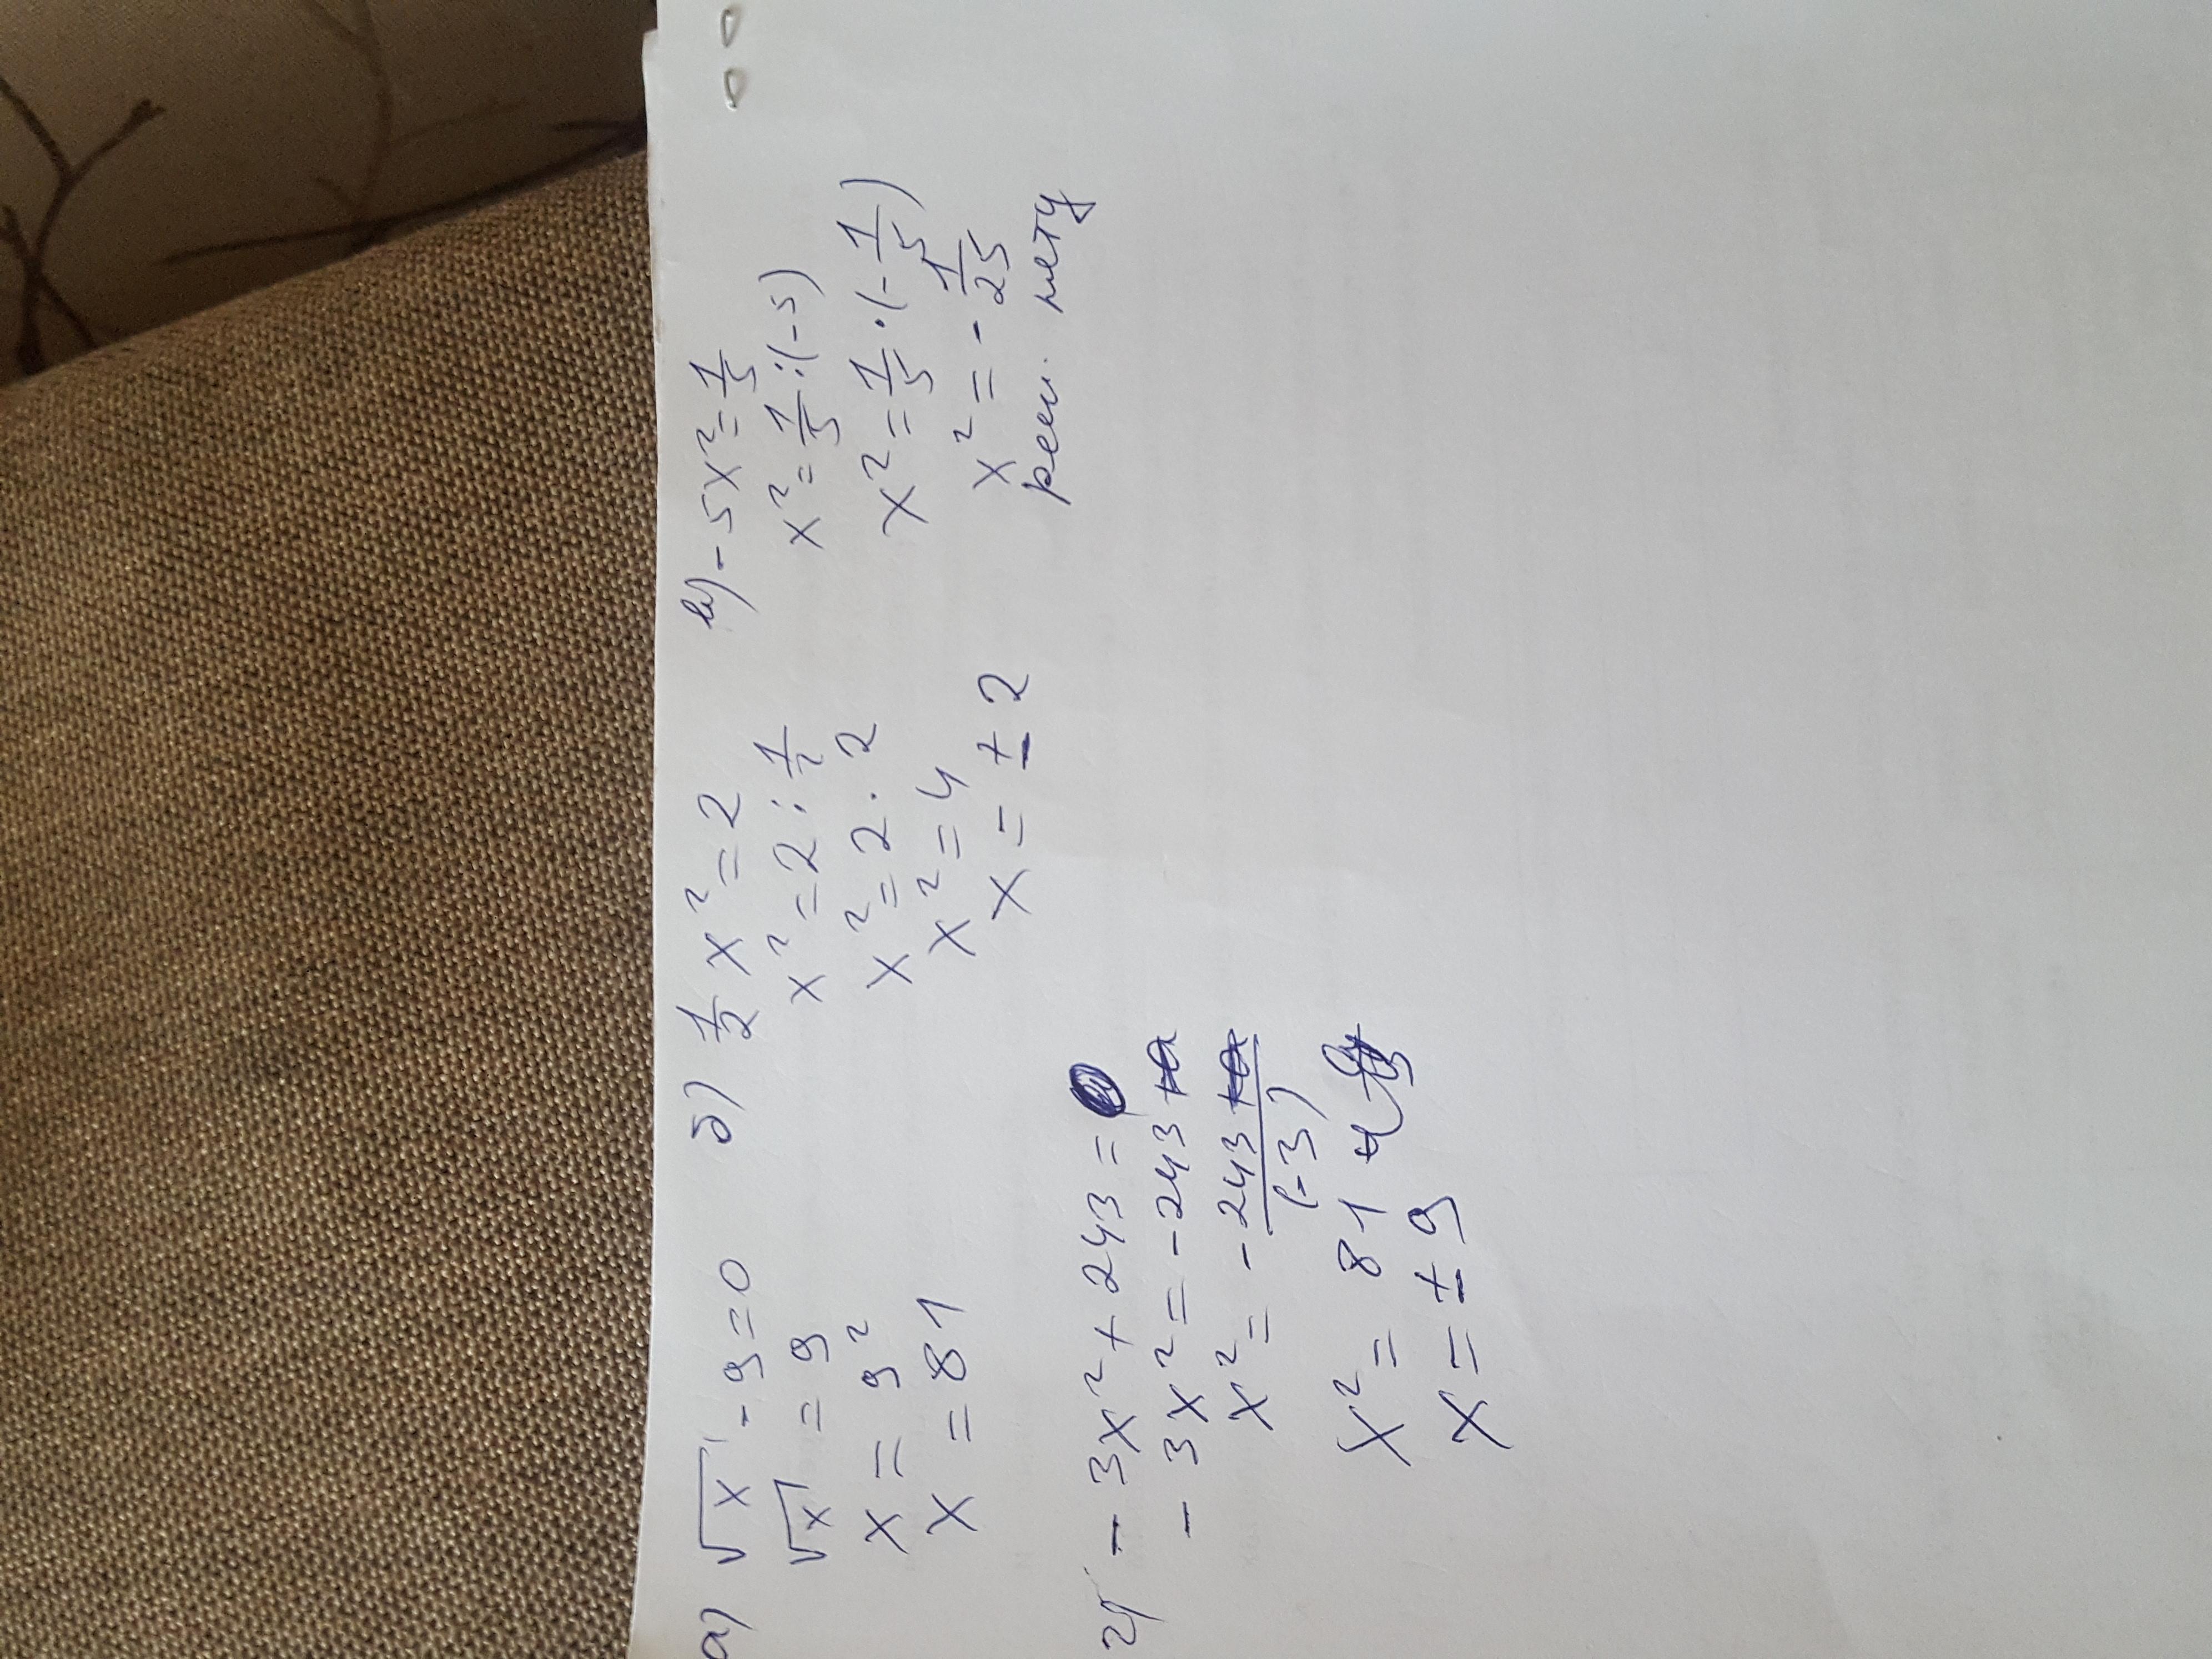 а) √x - 9 = 0
√x = 9
x = 9²
x = 81
б) 1/2 x² = 2
x² = 2 : 1/2
x² = 2 · 2
x² = 4
x = ± 2
в) - 5x² = 1/5
x² = 1/5 : (-5)
x² = 1/5 · (- 1/5)
x² = - 1/25
реш. нету
г) - 3x² + 243 =
- 3x² = - 243
x² = - 243/(-3)
x² = 81
x = ± 9